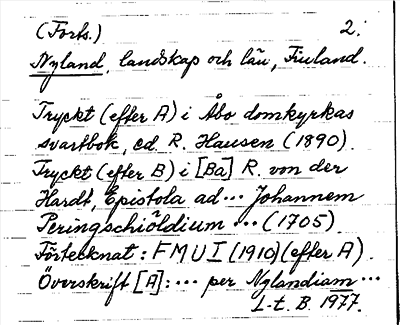 (Forts.) 2.
Nyland, landskap och län, Finland.
Tryckt (efter A) i Åbo domkyrkas
svartbok, ed. R. Hausen (1890).
Tryckt (efter B) i [Ba] R. von der
Hardt, Epistola ad ... Johannem
Peringschiöldium ... (1705).
Förtecknat: FMU I (1910) (efter A).
Överskrift [A]: ... per Nylandiam ...
L-t. B. 1977.